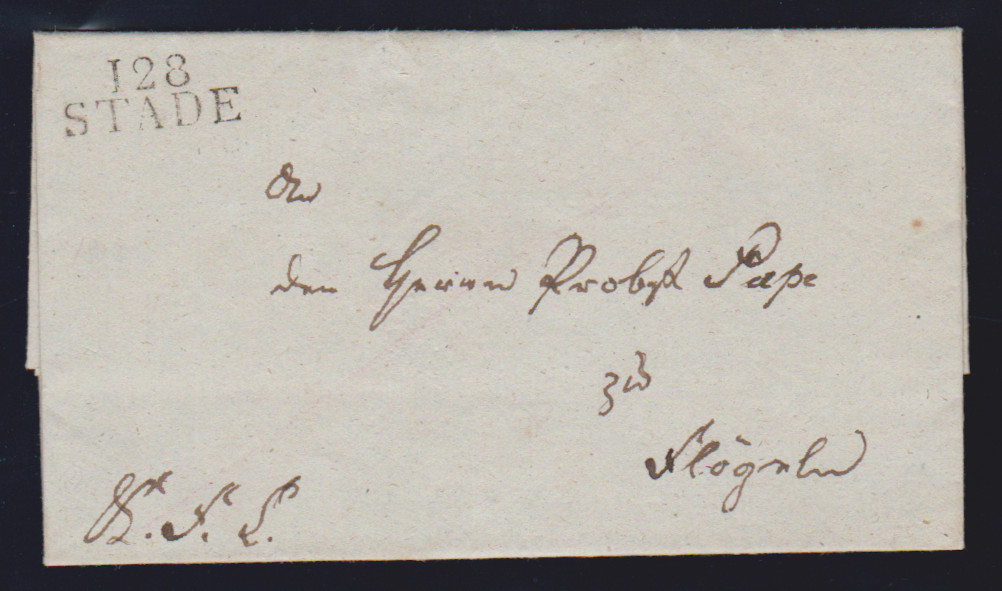 128
STADE
An
den Herrn Probst Pape
zu
Flögeln